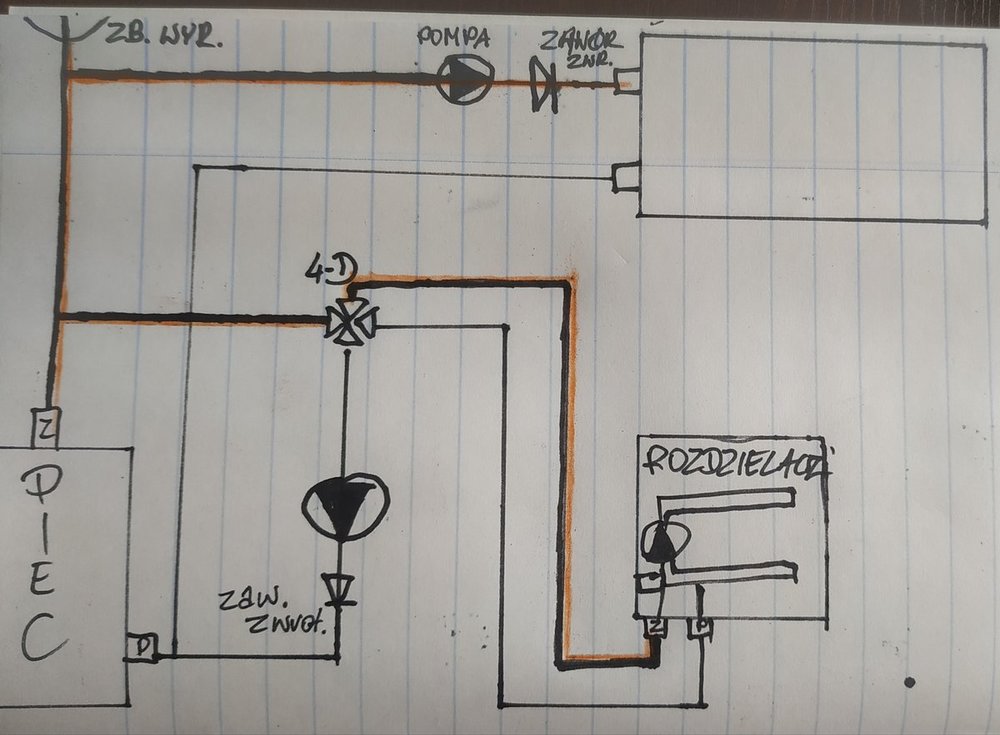 ZB. WYR.
POMPA
ZAWÓR
ZWR.
4-D
Z
P
I
E
C
P
ZAW.
ZWROT.
ROZDZIELACZ
Z
P